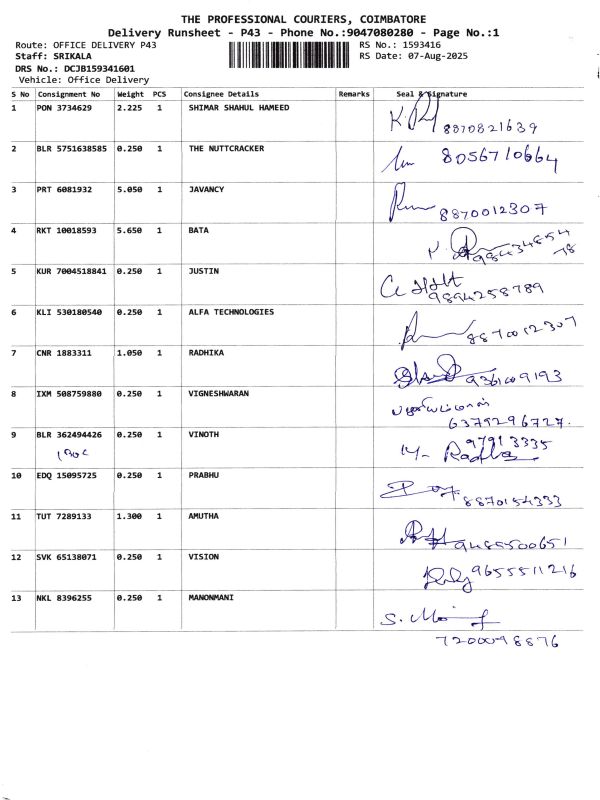 THE PROFESSIONAL COURIERS, COIMBATORE
Delivery Runsheet - P43 - Phone No.:9047080280 - Page No.:1
Route: OFFICE DELIVERY P43 RS No.: 1593416
Staff: SRIKALA RS Date: 07-Aug-2025
DRS No.: DCJB159341601
Vehicle: Office Delivery
S No Consignment No Weight PCS Consignee Details Remarks Seal & Signature
1 PON 3734629 2.225 1 SHIMAR SHAHUL HAMEED
8870821639
2 BLR 5751638585 0.250 1 THE NUTTCRACKER
8056710664
3 PRT 6081932 5.050 1 JAVANCY
8870012307
4 RKT 10018593 5.650 1 BATA
98434854
78
5 KUR 7004518841 0.250 1 JUSTIN
9894258789
6 KLI 530180540 0.250 1 ALFA TECHNOLOGIES
8870012307
7 CNR 1883311 1.050 1 RADHIKA
9361009193
8 IXM 508759880 0.250 1 VIGNESHWARAN
6379296727.
9 BLR 362494426 0.250 1 VINOTH
97913335
Radha
10 EDQ 15095725 0.250 1 PRABHU
8870154333
11 TUT 7289133 1.300 1 AMUTHA
9488500651
12 SVK 65138071 0.250 1 VISION
9655511216
13 NKL 8396255 0.250 1 MANONMANI
7200098876